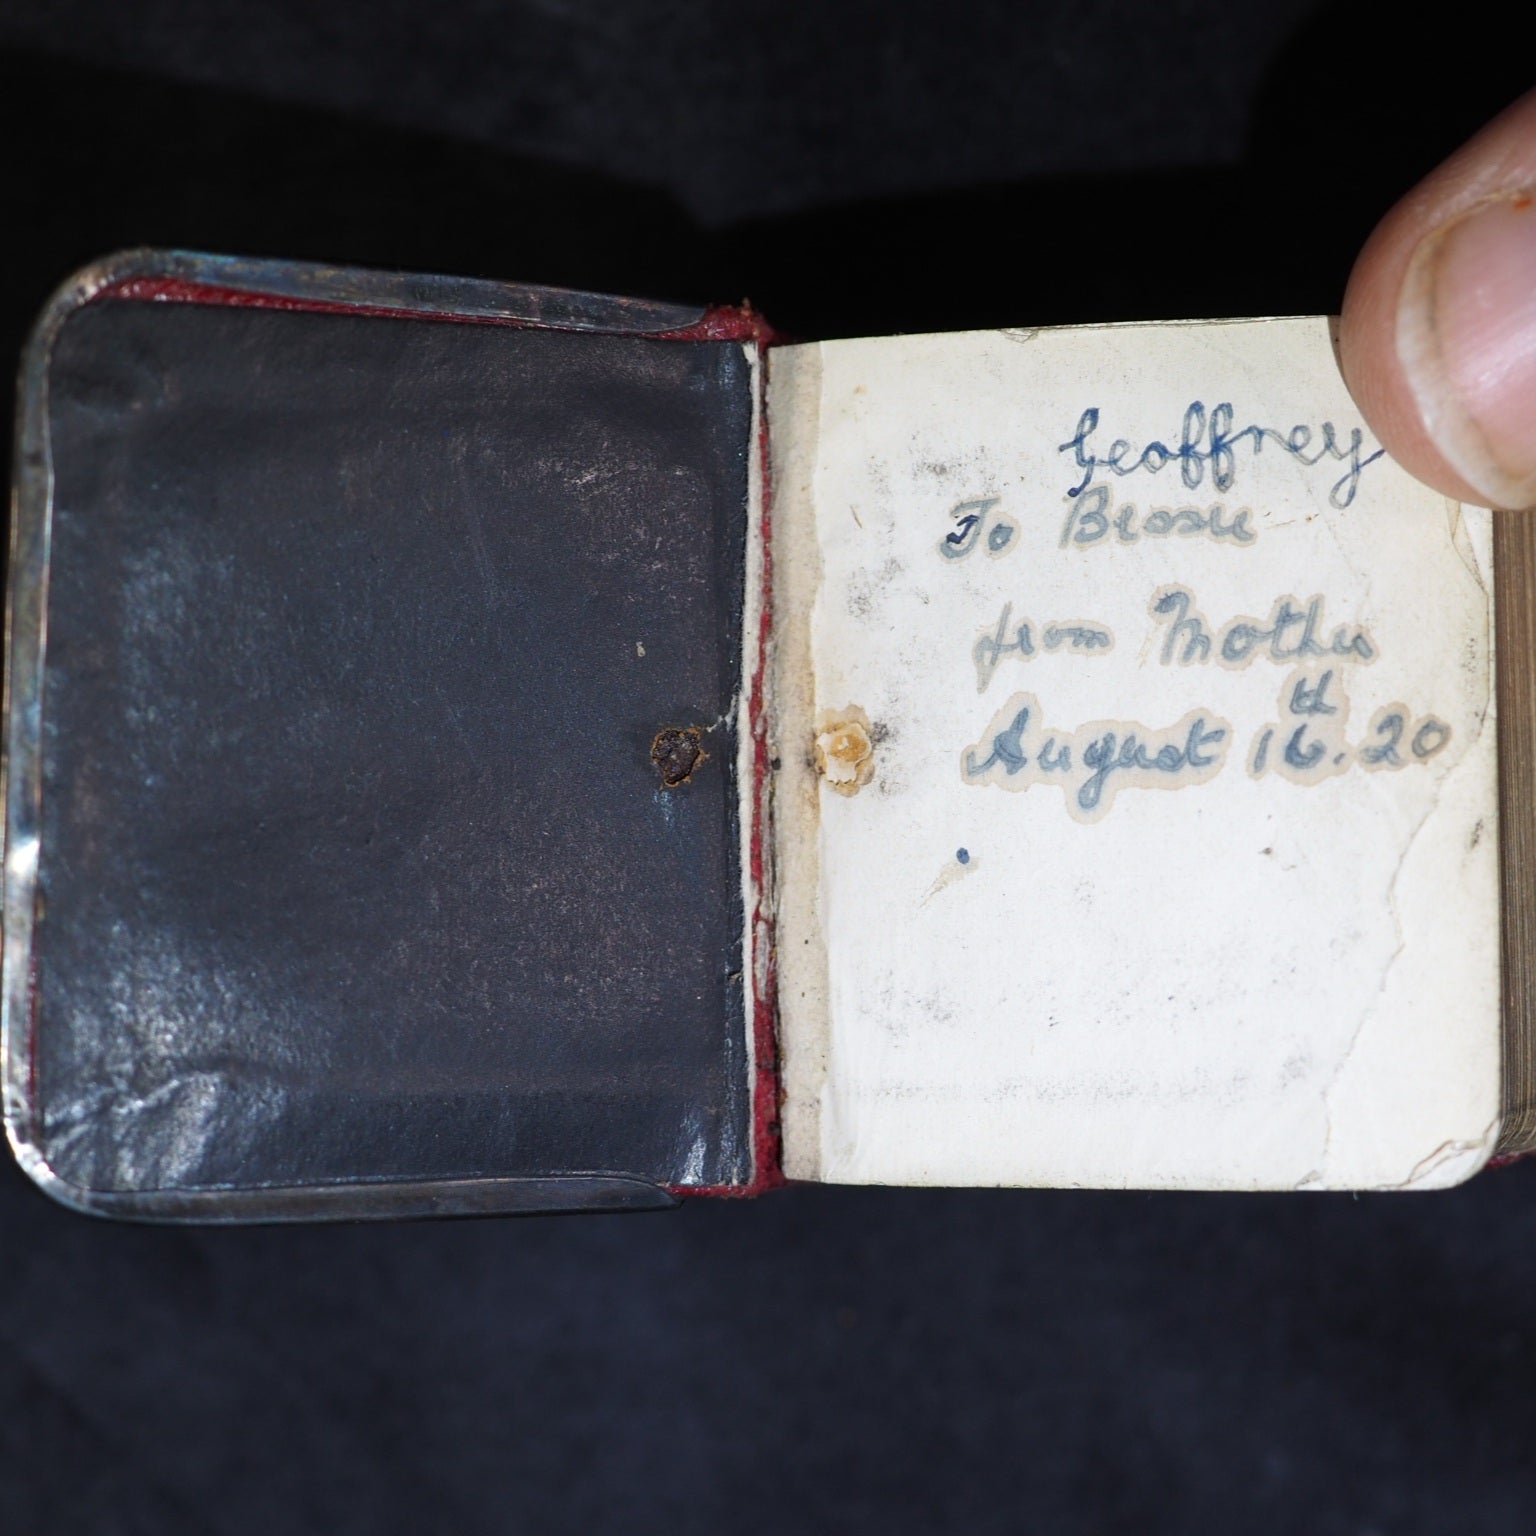 Geoffrey
To Bessie
from Mother
August 16th. 20